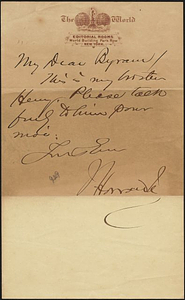 The World
EDITORIAL ROOMS
World Building Park Row
NEW YORK
My Dear
This is my brother
Henry. Please talk
freely to him pour
moi.
J Howard Jr